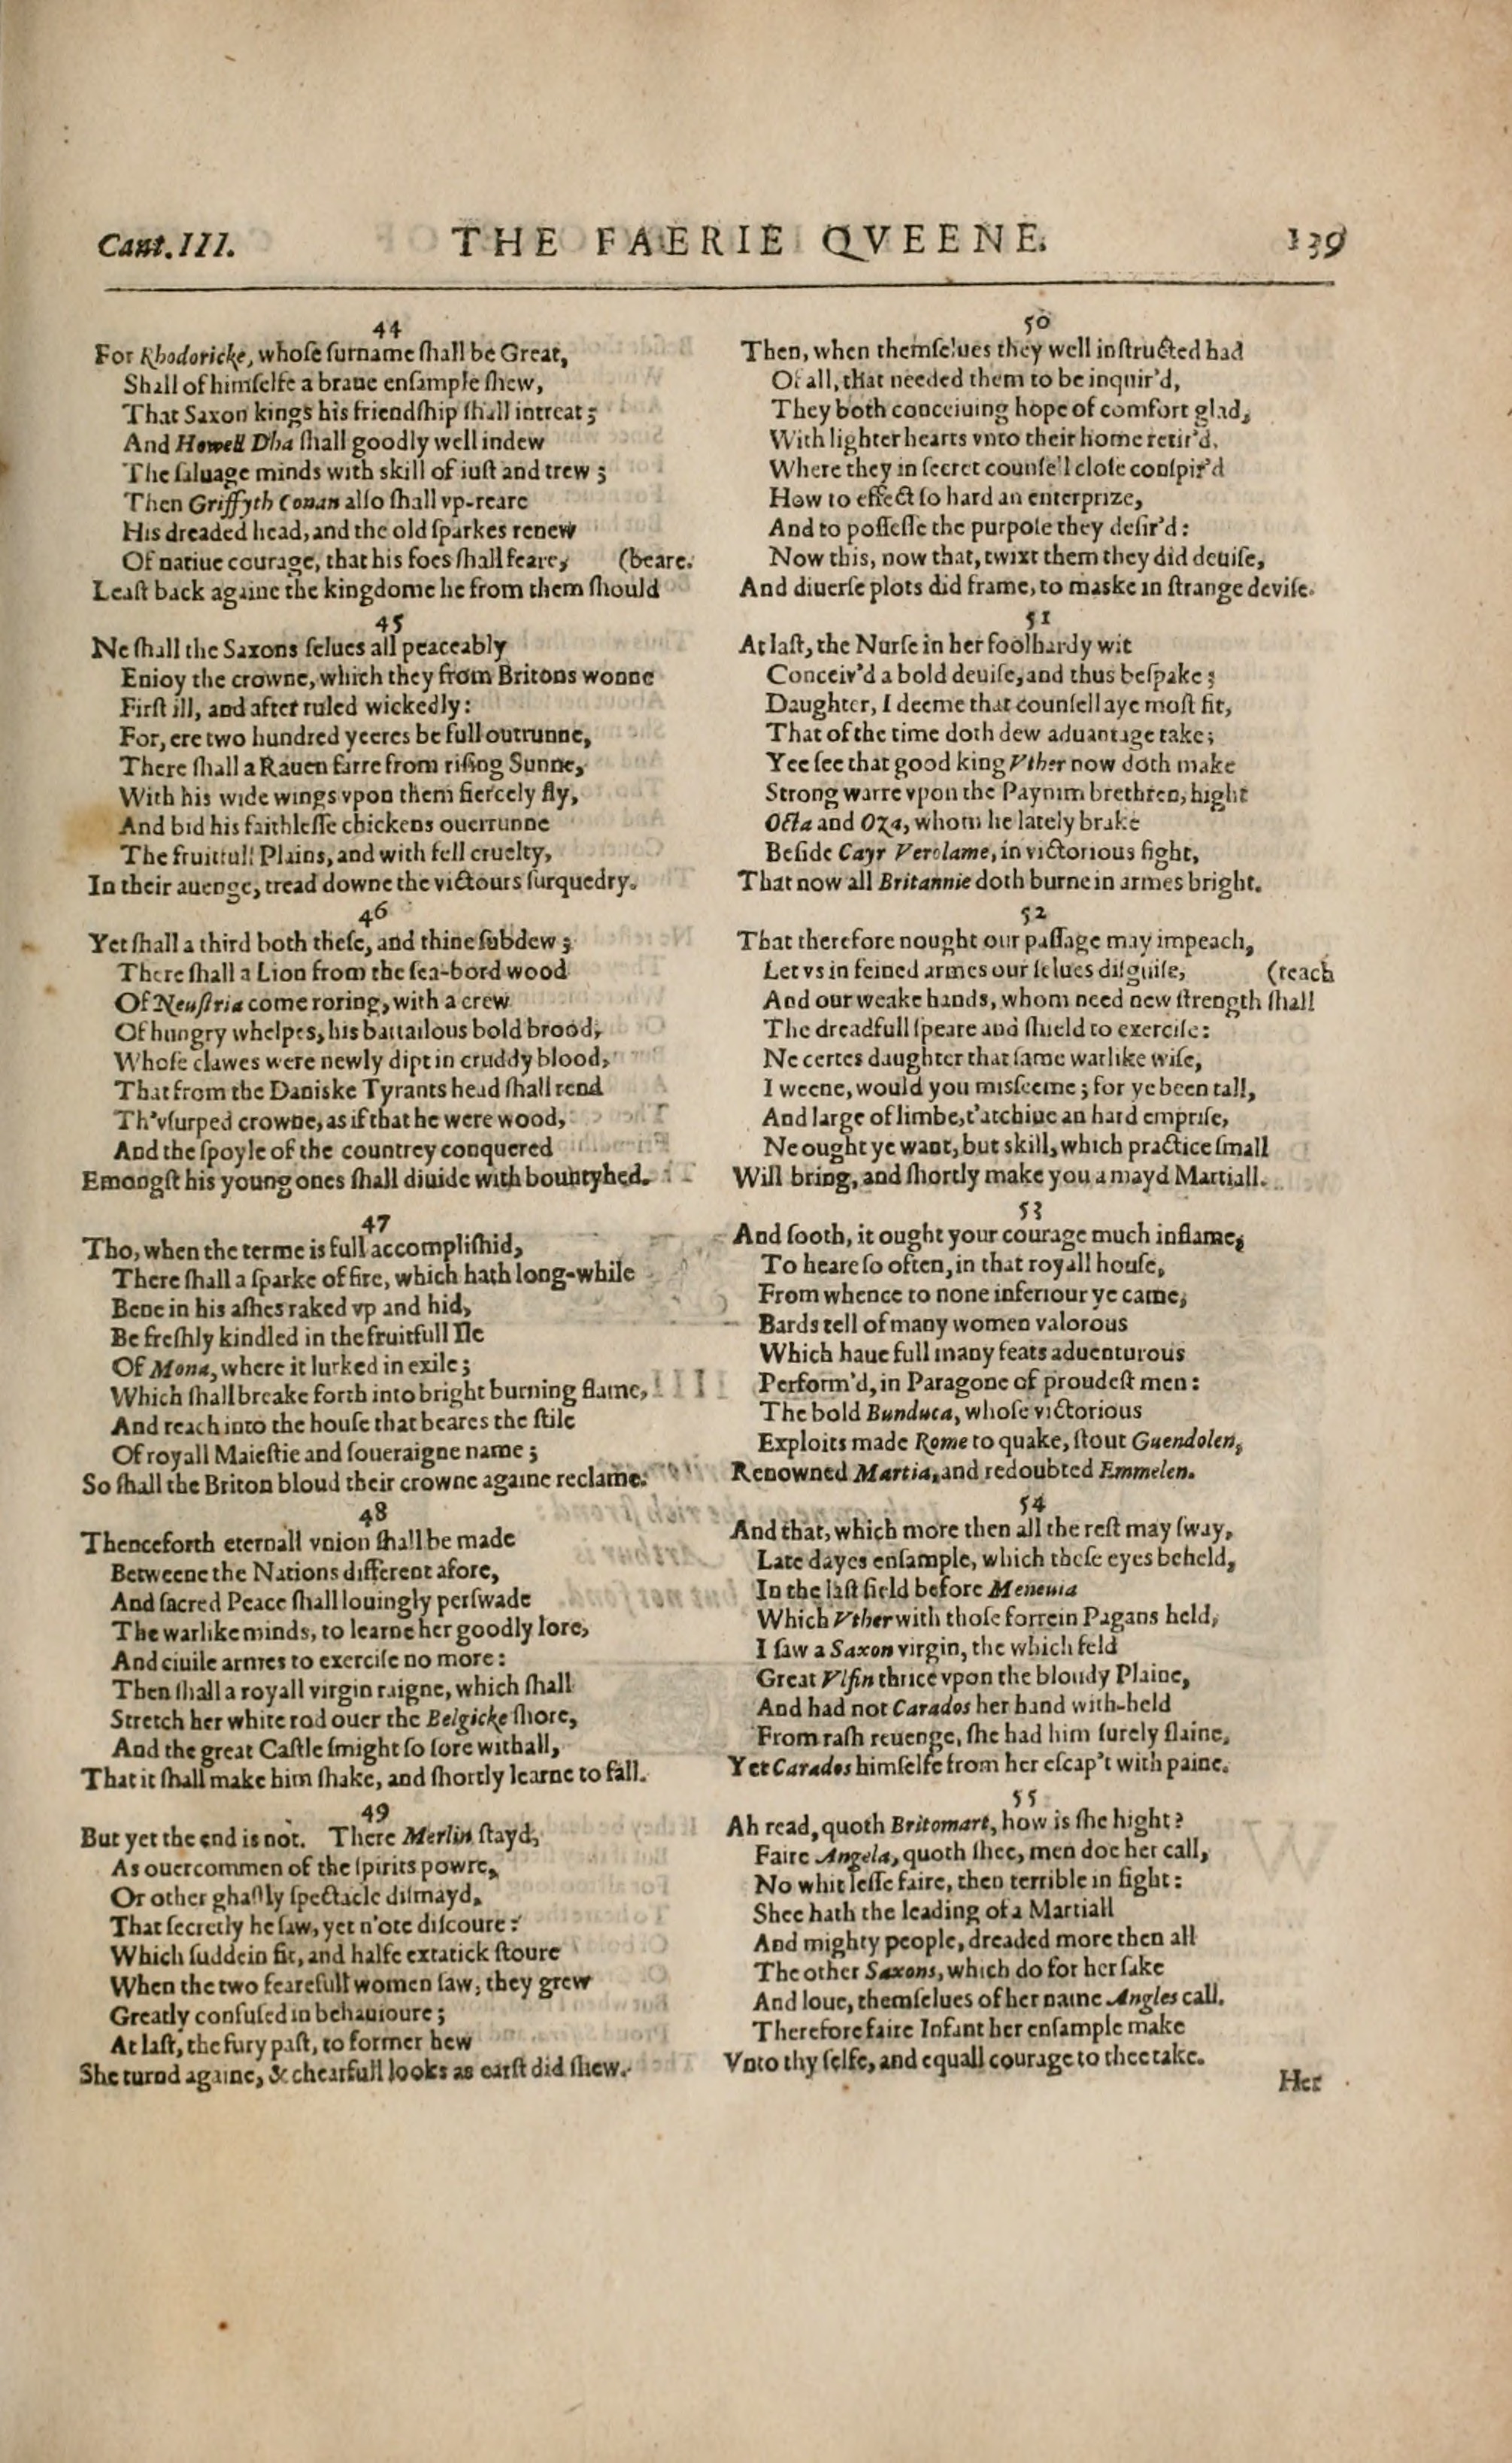 Cant.III. THE FAERIE QVEENE. 139
44
For Rhodoricke, whoſe ſurname ſhall be Great,
Shall of himſelfe a braue enſample ſhew,
That Saxon kings his friendſhip ſhall intreat;
And Howell Dha ſhall goodly well indew
The ſaluage minds with skill of iuſt and trew;
Then Griffyth Conan alſo ſhall vp-reare
His dreaded head, and the old ſparkes renew
Of natiue courage, that his foes ſhall feare, (beare.
Leaſt back againe the kingdome he from them ſhould
45
Ne ſhall the Saxons ſelues all peaceably
Enioy the crowne, which they from Britons wonne
Firſt ill, and after ruled wickedly:
For, ere two hundred yeeres be full outrunne,
There ſhall a Rauen farre from riſing Sunne,
With his wide wings vpon them fiercely fly,
And bid his faithleſſe chickens ouerrunne
The fruitfull Plains, and with fell cruelty,
In their auenge, tread downe the victours ſurquedry.
46
Yet ſhall a third both theſe, and thine ſubdew;
There ſhall a Lion from the ſea-bord wood
Of Neuſtria come roring, with a crew
Of hungry whelpes, his battailous bold brood,
Whoſe clawes were newly dipt in cruddy blood,
That from the Daniske Tyrants head ſhall rend
Th'vſurped crowne, as if that he were wood,
And the ſpoyle of the countrey conquered
Emongſt his young ones ſhall diuide with bountyhed.
47
Tho, when the terme is full accompliſhid,
There ſhall a ſparke of fire, which hath long-while
Bene in his aſhes raked vp and hid,
Be freſhly kindled in the fruitfull Ile
Of Mona, where it lurked in exile;
Which ſhall breake forth into bright burning flame,
And reach into the houſe that beares the ſtile
Of royall Maieſtie and ſoueraigne name;
So ſhall the Briton bloud their crowne againe reclame.
48
Thenceforth eternall vnion ſhall be made
Betweene the Nations different afore,
And ſacred Peace ſhall louingly perſwade
The warlike minds, to learne her goodly lore,
And ciuile armes to exerciſe no more:
Then ſhall a royall virgin raigne, which ſhall
Stretch her white rod ouer the Belgicke ſhore,
And the great Caſtle ſmight ſo ſore withall,
That it ſhall make him ſhake, and ſhortly learne to fall.
49
But yet the end is not. There Merlin ſtayd,
As ouercommen of the ſpirits powre,
Or other ghaſtly ſpectacle diſmayd,
That ſecretly he ſaw, yet n'ote diſcoure:
Which ſuddein fit, and halfe extatick ſtoure
When the two fearefull women ſaw, they grew
Greatly confuſed in behauioure;
At laſt, the fury paſt, to former hew
She turnd againe, & chearfull looks as earſt did ſhew.
50
Then, when themſelues they well inſtructed had
Of all, that needed them to be inquir'd,
They both conceiuing hope of comfort glad,
With lighter hearts vnto their home retir'd,
Where they in ſecret counſell cloſe conſpir'd
How to effect ſo hard an enterprize,
And to poſſeſſe the purpoſe they deſir'd:
Now this, now that, twixt them they did deuiſe,
And diuerſe plots did frame, to maske in ſtrange deviſe.
51
At laſt, the Nurſe in her foolhardy wit
Conceiv'd a bold deuiſe, and thus beſpake;
Daughter, I deeme that counſell aye moſt fit,
That of the time doth dew aduantage take;
Yee ſee that good king Vther now doth make
Strong warre vpon the Paynim brethren, hight
Octa and Oza, whom he lately brake
Beſide Cayr Verolame, in victorious fight,
That now all Britannie doth burne in armes bright.
52
That therefore nought our paſſage may impeach,
Let vs in feined armes our ſelues diſguiſe, (reach
And our weake hands, whom need new ſtrength ſhall
The dreadfull ſpeare and ſhield to exerciſe:
Ne certes daughter that ſame warlike wiſe,
I weene, would you misſeeme; for ye been tall,
And large of limbe, t'atchiue an hard empriſe,
Ne ought ye want, but skill, which practice ſmall
Will bring, and ſhortly make you a mayd Martiall.
53
And ſooth, it ought your courage much inflame,
To heare ſo often, in that royall houſe,
From whence to none inferiour ye came,
Bards tell of many women valorous
Which haue full many feats aduenturous
Perform'd, in Paragone of proudeſt men:
The bold Bunduca, whoſe victorious
Exploits made Rome to quake, ſtout Guendolen,
Renowned Martia, and redoubted Emmelen.
54
And that, which more then all the reſt may ſway,
Late dayes enſample, which theſe eyes beheld,
In the laſt field before Meneuia
Which Vther with thoſe forrein Pagans held,
I ſaw a Saxon virgin, the which feld
Great Vlfin thrice vpon the bloudy Plaine,
And had not Carados her hand with-held
From raſh reuenge, ſhe had him ſurely ſlaine,
Yet Carados himſelfe from her eſcap't with paine.
55
Ah read, quoth Britomart, how is ſhe hight?
Faire Angela, quoth ſhee, men doe her call,
No whit leſſe faire, then terrible in fight:
Shee hath the leading of a Martiall
And mighty people, dreaded more then all
The other Saxons, which do for her ſake
And loue, themſelues of her name Angles call.
Therefore faire Infant her enſample make
Vnto thy ſelfe, and equall courage to thee take.
Her